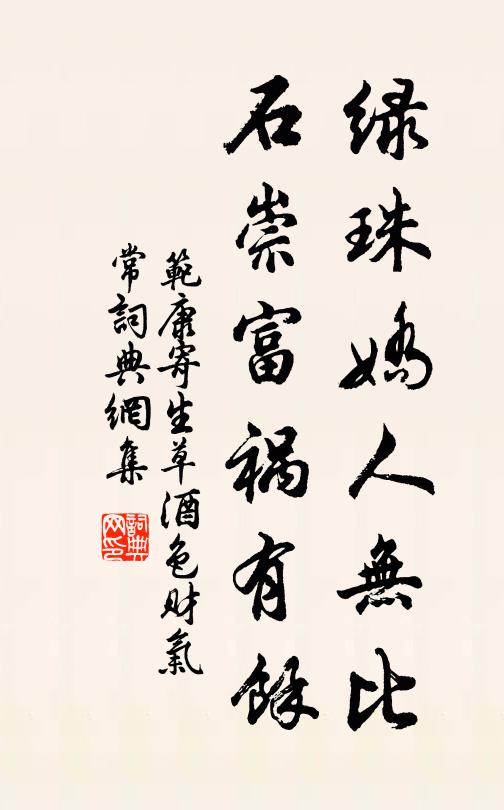 绿珠娇人無比
石崇富禍有餘
範康寄生草酒色財氣
常詞典網集
詞典网印